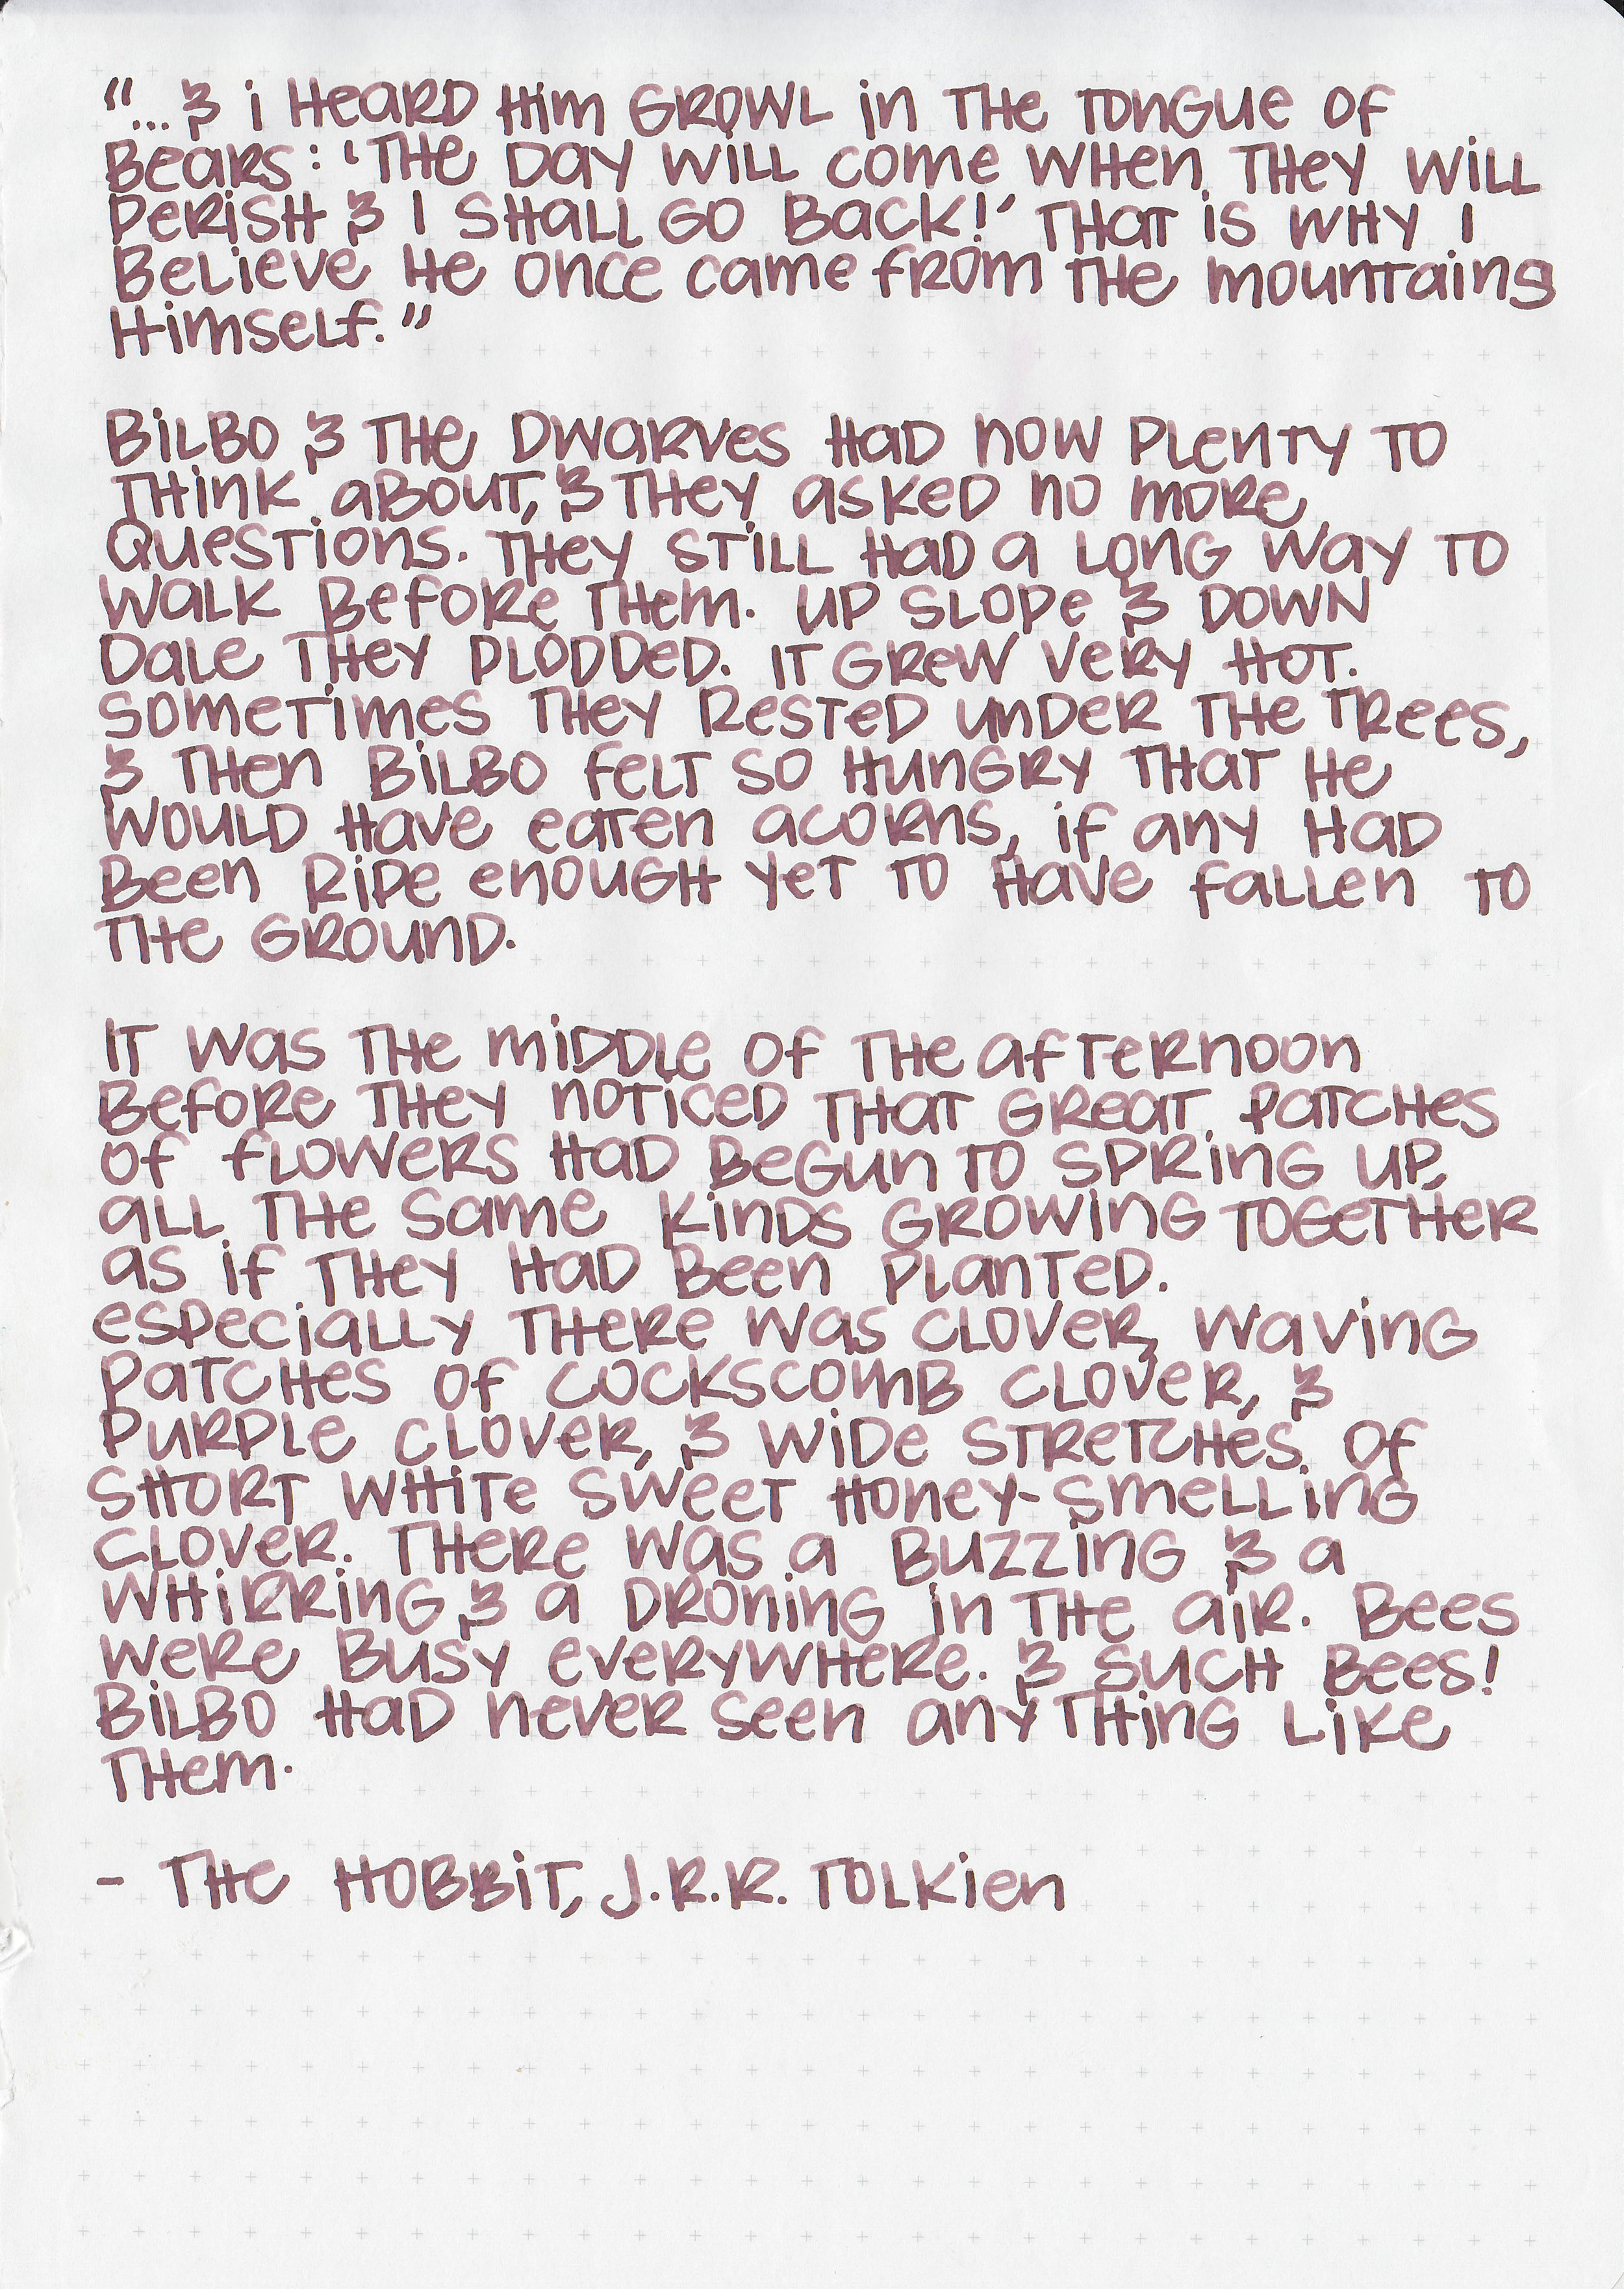 "...& i HeaRD Him GROWL in THe TOnGUe OF
BeaRS: 'THe Day WiLL come WHen THey WiLL
PeRiSH & I SHaLL GO Back!' THaT iS WHY I
BeLieve He Once came FROm THe mOunTains
HimseLF."
BiLBO & THe DWaRves HaD nOW PLenTy TO
THink aBOUT, & THey askeD nO mORe
QuesTiOns. THey STiLL HaD a LOnG Way TO
WaLK BeFORe THem. UP SLOPe & DOWN
DaLe THey PLODDeD. IT GReW VeRy HOT.
SOmeTimes THey ResTeD unDeR THe TRees,
& THen BiLBO FeLT SO HunGRY THaT He
WOULD Have eaTen acORns, if any HaD
Been RiPe enOUGH yeT TO Have FaLLen TO
THe GROUnD.
IT Was THe miDDLe OF THe aFTeRnOOn
BeFORe THey nOTiceD THaT GReaT PaTcHes
OF FLOWeRS HaD BeGun TO SPRinG UP,
aLL THe Same KinDS GROWinG TOGeTHeR
as if THey HaD Been PLanTeD.
esPeciaLLy THeRe Was CLOveR, WavinG
PaTcHes OF cOckscOmB CLOveR, &
PuRPLe CLOveR, & WiDe STReTcHes OF
SHORT WHiTe SWeeT HOney-SmeLLinG
CLOveR. THeRe Was a BuzzinG & a
WHiRRinG & a DROninG in THe aiR. Bees
WeRe Busy eveRyWHeRe. & SucH Bees!
BiLBO HaD neveR Seen anyTHinG Like
THem.
- THe HOBBiT, J.R.R. TOLKien